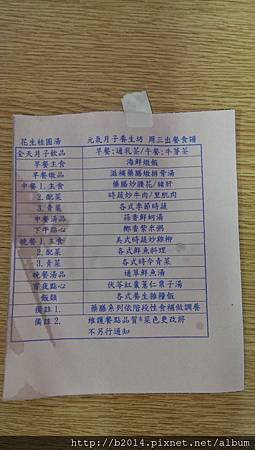 花生桂圓湯 元氣月子養生坊 周三出餐食譜
全天月子飲品 早餐:通乳茶/午餐:牛蒡茶
早餐主食 海鮮燉飯
早餐燉品 滋補藥膳燉排骨湯
中餐1.主食 藥膳炒腰花/豬肝
2.配菜 時蔬炒牛肉/里肌肉
3.青菜 各式季節時蔬
中餐湯品 蒜香鮮蚵湯
下午點心 椰香紫米粥
晚餐1.主食 美式時蔬炒雞柳
2.配菜 各式鮮魚料理
3.青菜 各式時令青菜
晚餐湯品 通草鮮魚湯
宵夜點心 伏苓紅棗薏仁栗子湯
飯類 各式養生雜糧飯
備註1. 藥膳系列依階段性食補做調養
備註2. 維護餐點品質*菜色更改將
不另行通知
http://b2014.pixnet.net/album